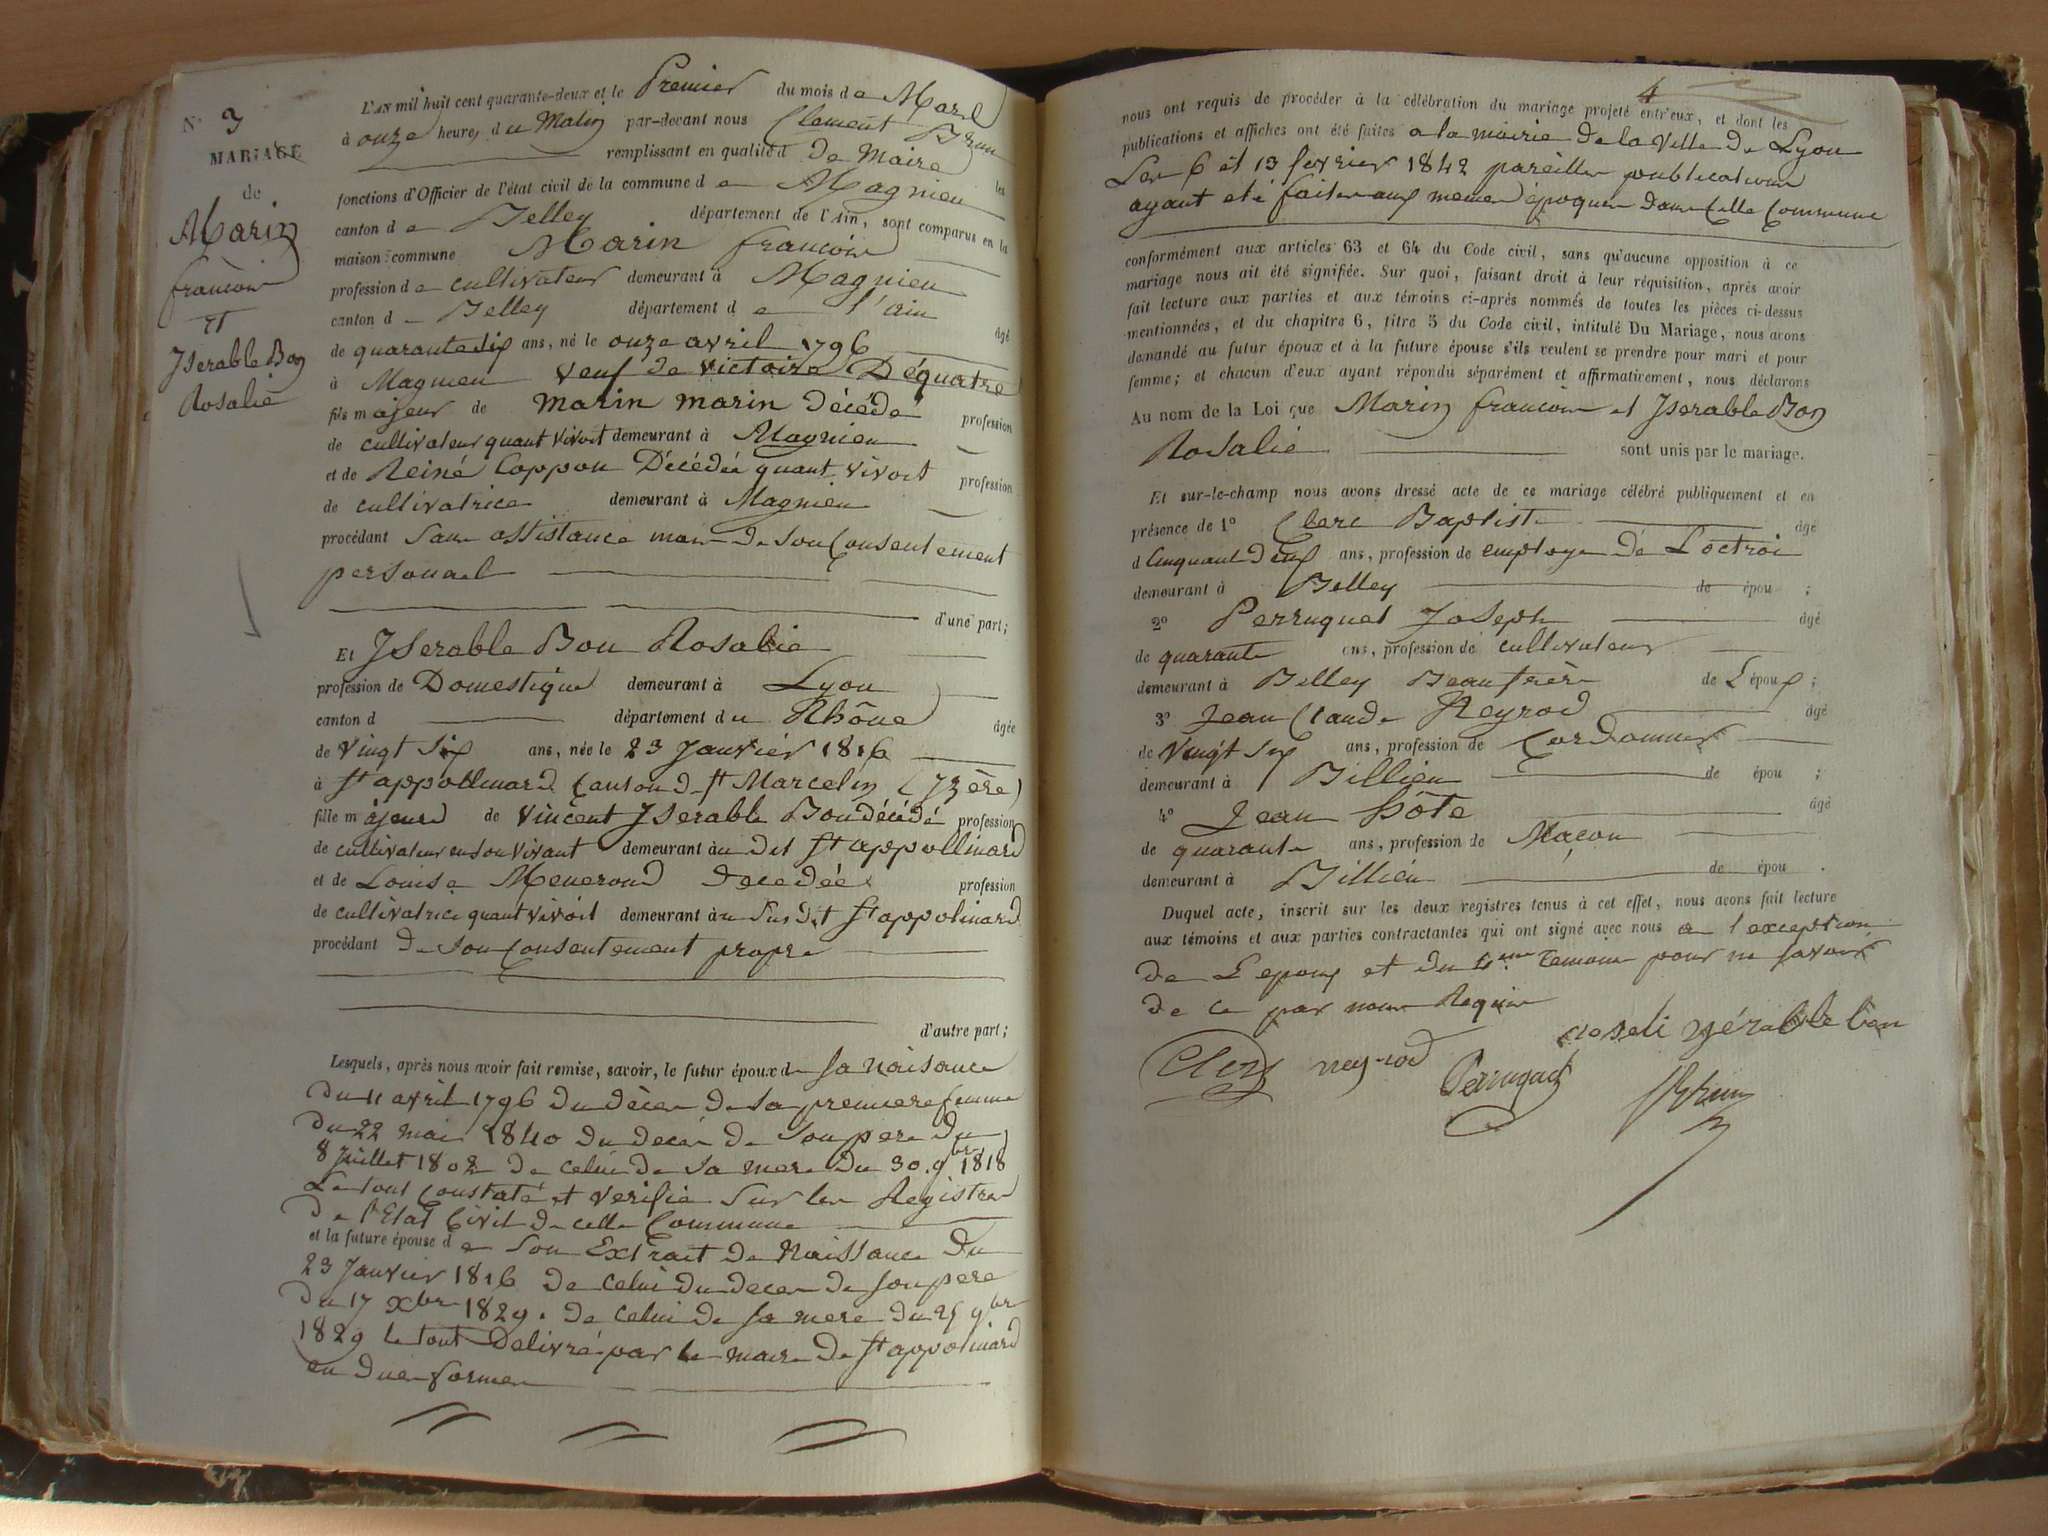 N° 3
MARIAGE
de
Marin
francois
et
Iserable Bon
Rosalie
L'AN mil huit cent quarante-deux et le Premier du mois de Mars
à onze heures du Matin par-devant nous Clement Brun
remplissant en qualité d de Maire les
fonctions d'Officier de l'état civil de la commune de Magnieu
canton de Belley département de l'Ain, sont comparus en la
maison commune Marin francois
profession de cultivateur demeurant à Magnieu
canton de Belley département de l'ain âgé
de quarante six ans, né le onze avril 1796
à Magnieu veuf de victoire Déquatre
fils majeur de marin marin décédé profession
de cultivateur quant vivoit demeurant à Magnieu
et de Reine Coppon Décédée quant vivoit profession
de cultivatrice demeurant à Magnieu
procédant sans assistance mais de son Consentement
personael
d'une part;
Et Iserable Bon Rosalie
profession de Domestique demeurant à Lyon
canton d département du Rhône âgée
de vingt six ans, née le 23 Janvier 1816
à St appollinard Canton de St Marcelin (Izère)
fille majeure de vincent Iserable Bon décédé profession
de cultivateur en son vivant demeurant au dit St appollinard
et de Louise Meneroud decedée profession
de cultivatrice quant vivoit demeurant au susdit St appolinard
procédant de son Consentement propre
d'autre part;
Lesquels, après nous avoir fait remise, savoir, le futur époux de sa naisance
du 11 avril 1796 du décès de sa premiere femme
du 22 mai 1840 du deces de son pere du
8 Juillet 1802 de celui de sa mere du 30. 9bre 1818
Le tout Constaté et verifié sur les Registres
de l'Etat Civil de cette Commune
et la future épouse de son Extrait de Naissance du
23 Janvier 1816 de celui du deces de son pere
du 17 Xbre 1829. de celui de sa mere du 25 9bre
1829 le tout Delivré par le maire de St appolinard
en dues formes
4
nous ont requis de procéder à la célébration du mariage projeté entr'eux, et dont les
publications et affiches ont été faites a la mairie de la ville de Lyon
Les 6 et 13 fevrier 1842 pareilles publications
ayant eté faites aux memes époques dans Cette Commune
conformément aux articles 63 et 64 du Code civil, sans qu'aucune opposition à ce
mariage nous ait été signifiée. Sur quoi, faisant droit à leur réquisition, après avoir
fait lecture aux parties et aux témoins ci-après nommés de toutes les pièces ci-dessus
mentionnées, et du chapitre 6, titre 5 du Code civil, intitulé Du Mariage, nous avons
demandé au futur époux et à la future épouse s'ils veulent se prendre pour mari et pour
femme; et chacun d'eux ayant répondu séparément et affirmativement, nous déclarons
Au nom de la Loi que Marin francois et Iserable Bon
Rosalie sont unis par le mariage.
Et sur-le-champ nous avons dressé acte de ce mariage célébré publiquement et en
présence de 1° Clerc Baptiste âgé
d Cinquant deux ans, profession de employe de L'octroi
demeurant à Belley de épou ;
2° Perruquet Joseph âgé
de quarante ans, profession de cultivateur
demeurant à Belley Beaufrère de L'époux ;
3° Jean Claude Neyrod âgé
de vingt six ans, profession de Cordonnier
demeurant à Billieu de épou ;
4° Jean hôte âgé
de quarante ans, profession de Maçon
demeurant à Billieu de épou .
Duquel acte, inscrit sur les deux registres tenus à cet effet, nous avons fait lecture
aux témoins et aux parties contractantes qui ont signé avec nous a l'exception
de L'epoux et du 4eme temoin pour ne savoir
de ce par nous Requis
Clerc neyrod Perruquet roseli yzérable bon
Brun